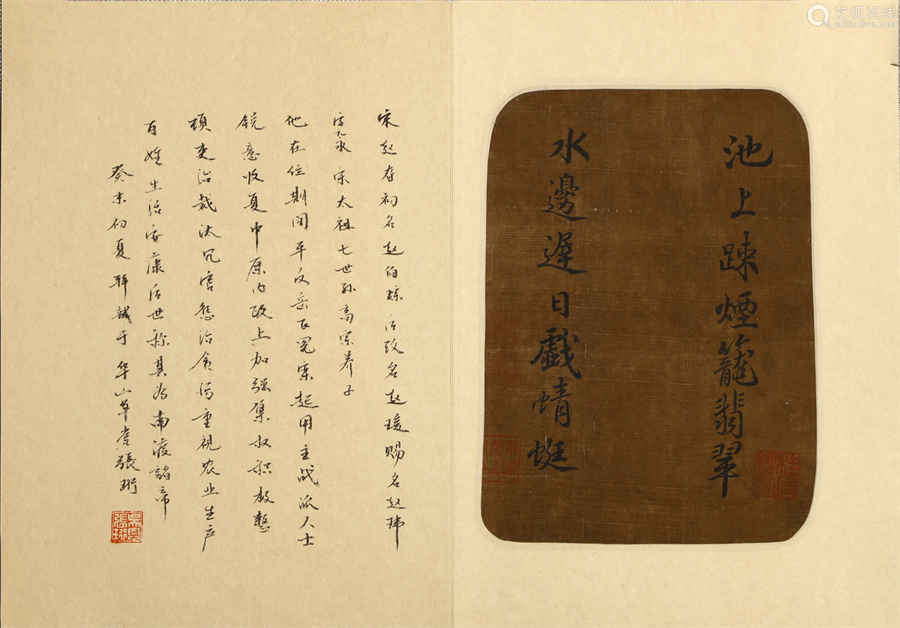 池上踈煙籠翡翠
水邊遲日戲蜻蜓
宋赵眘初名赵伯琮后改名赵瑗赐名赵玮
字元永宋太祖七世孙高宗养子
他在位期间平反岳飞冤案起用主战派人士
锐意收复中原内政上加强集权积极整
顿吏治裁汰冗官惩治贪污重视农业生产
百姓生活安康后世称其为南渡诸帝
癸未初夏拜识于 草堂張珩